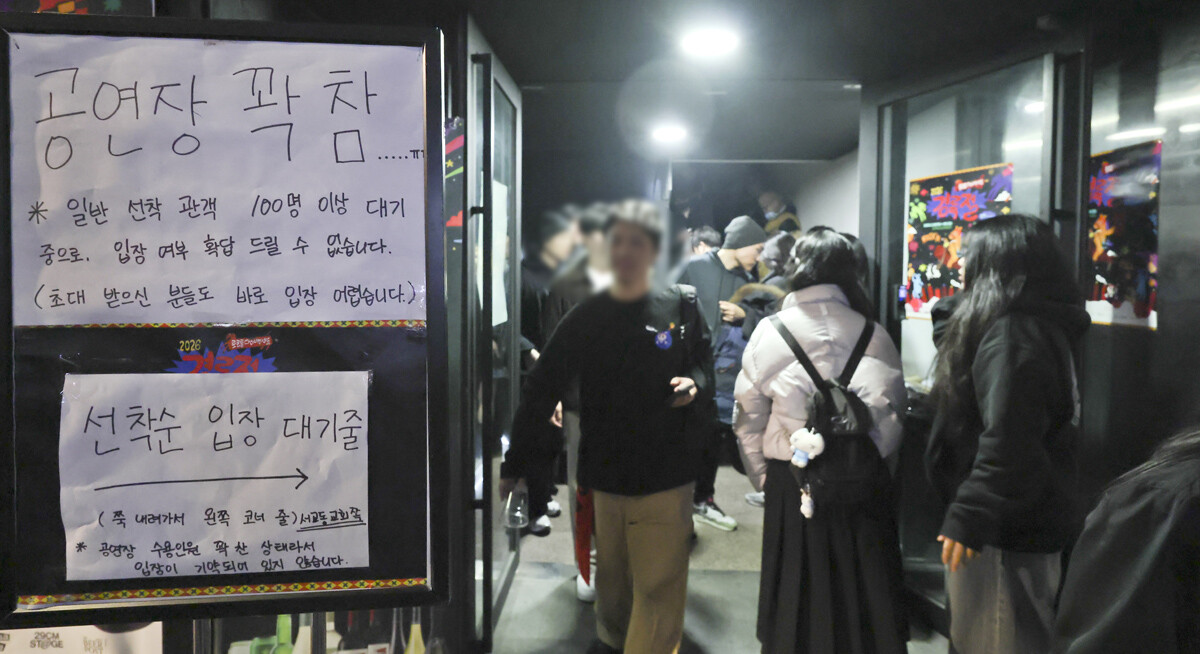 공연장 꽉 참 .....ㅠㅠ
* 일반 선착 관객 100명 이상 대기
중으로, 입장 여부 확답 드릴 수 없습니다.
(초대 받으신 분들도 바로 입장 어렵습니다.)
2026
선착순 입장 대기줄
(쭉 내려가서 왼쪽 코너 줄) 서교동교회쪽
* 공연장 수용인원 꽉 찬 상태라서
입장이 기약되어 있지 않습니다.
29CM
ST@GE